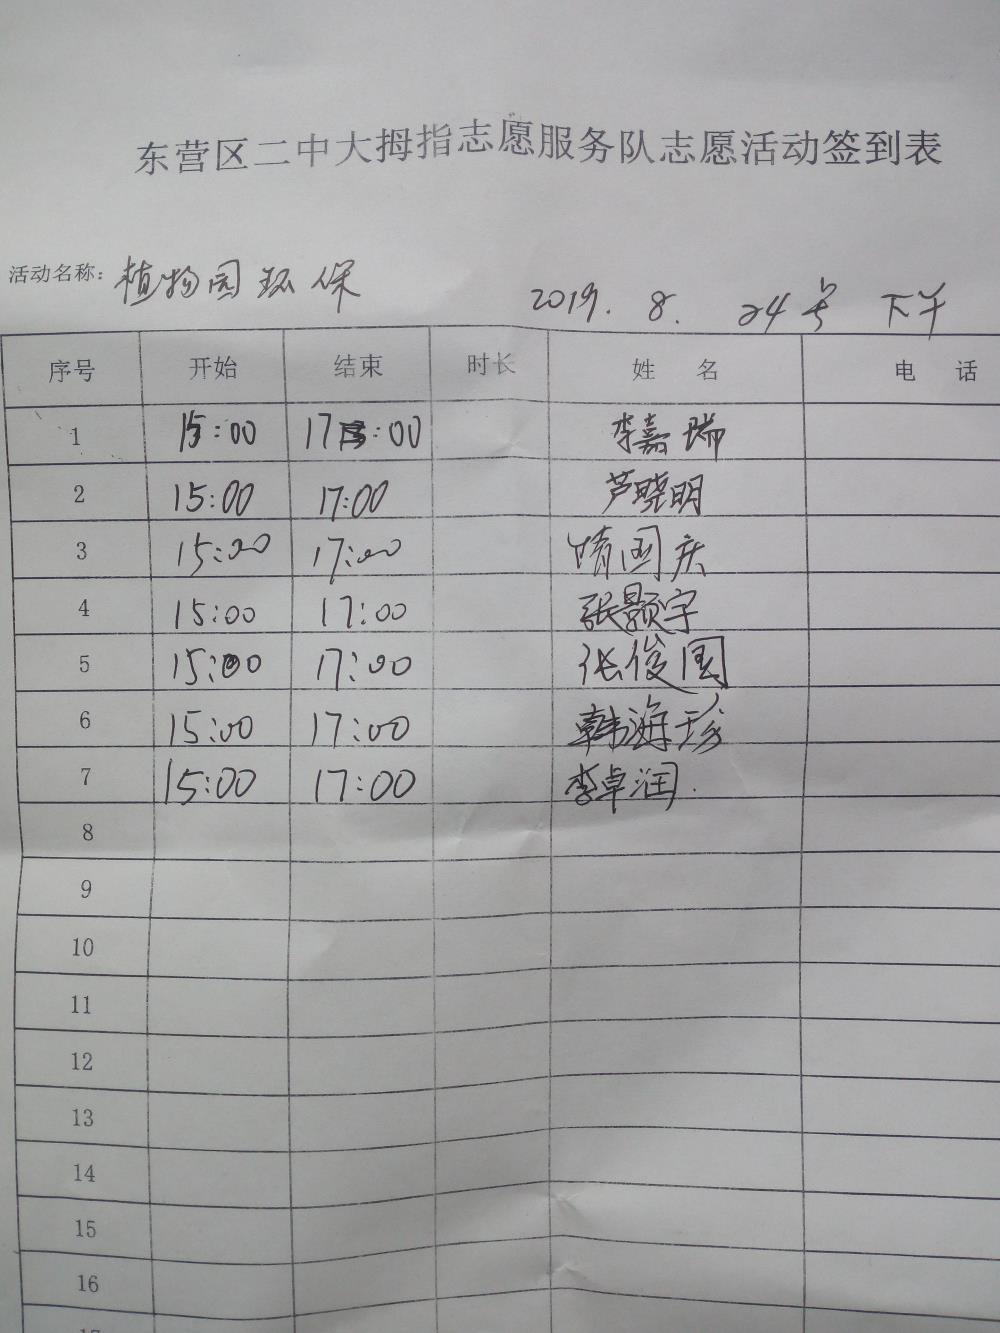 东营区二中大拇指志愿服务队志愿活动签到表
活动名称：植物园环保 2019. 8. 24号 下午
序号 开始 结束 时长 姓名 电话
1 15:00 17:00 李嘉瑞
2 15:00 17:00 芦晓明
3 15:00 17:00 靖国庆
4 15:00 17:00 张颢宇
5 15:00 17:00 张俊国
6 15:00 17:00 韩海珍
7 15:00 17:00 李卓润
8
9
10
11
12
13
14
15
16
17